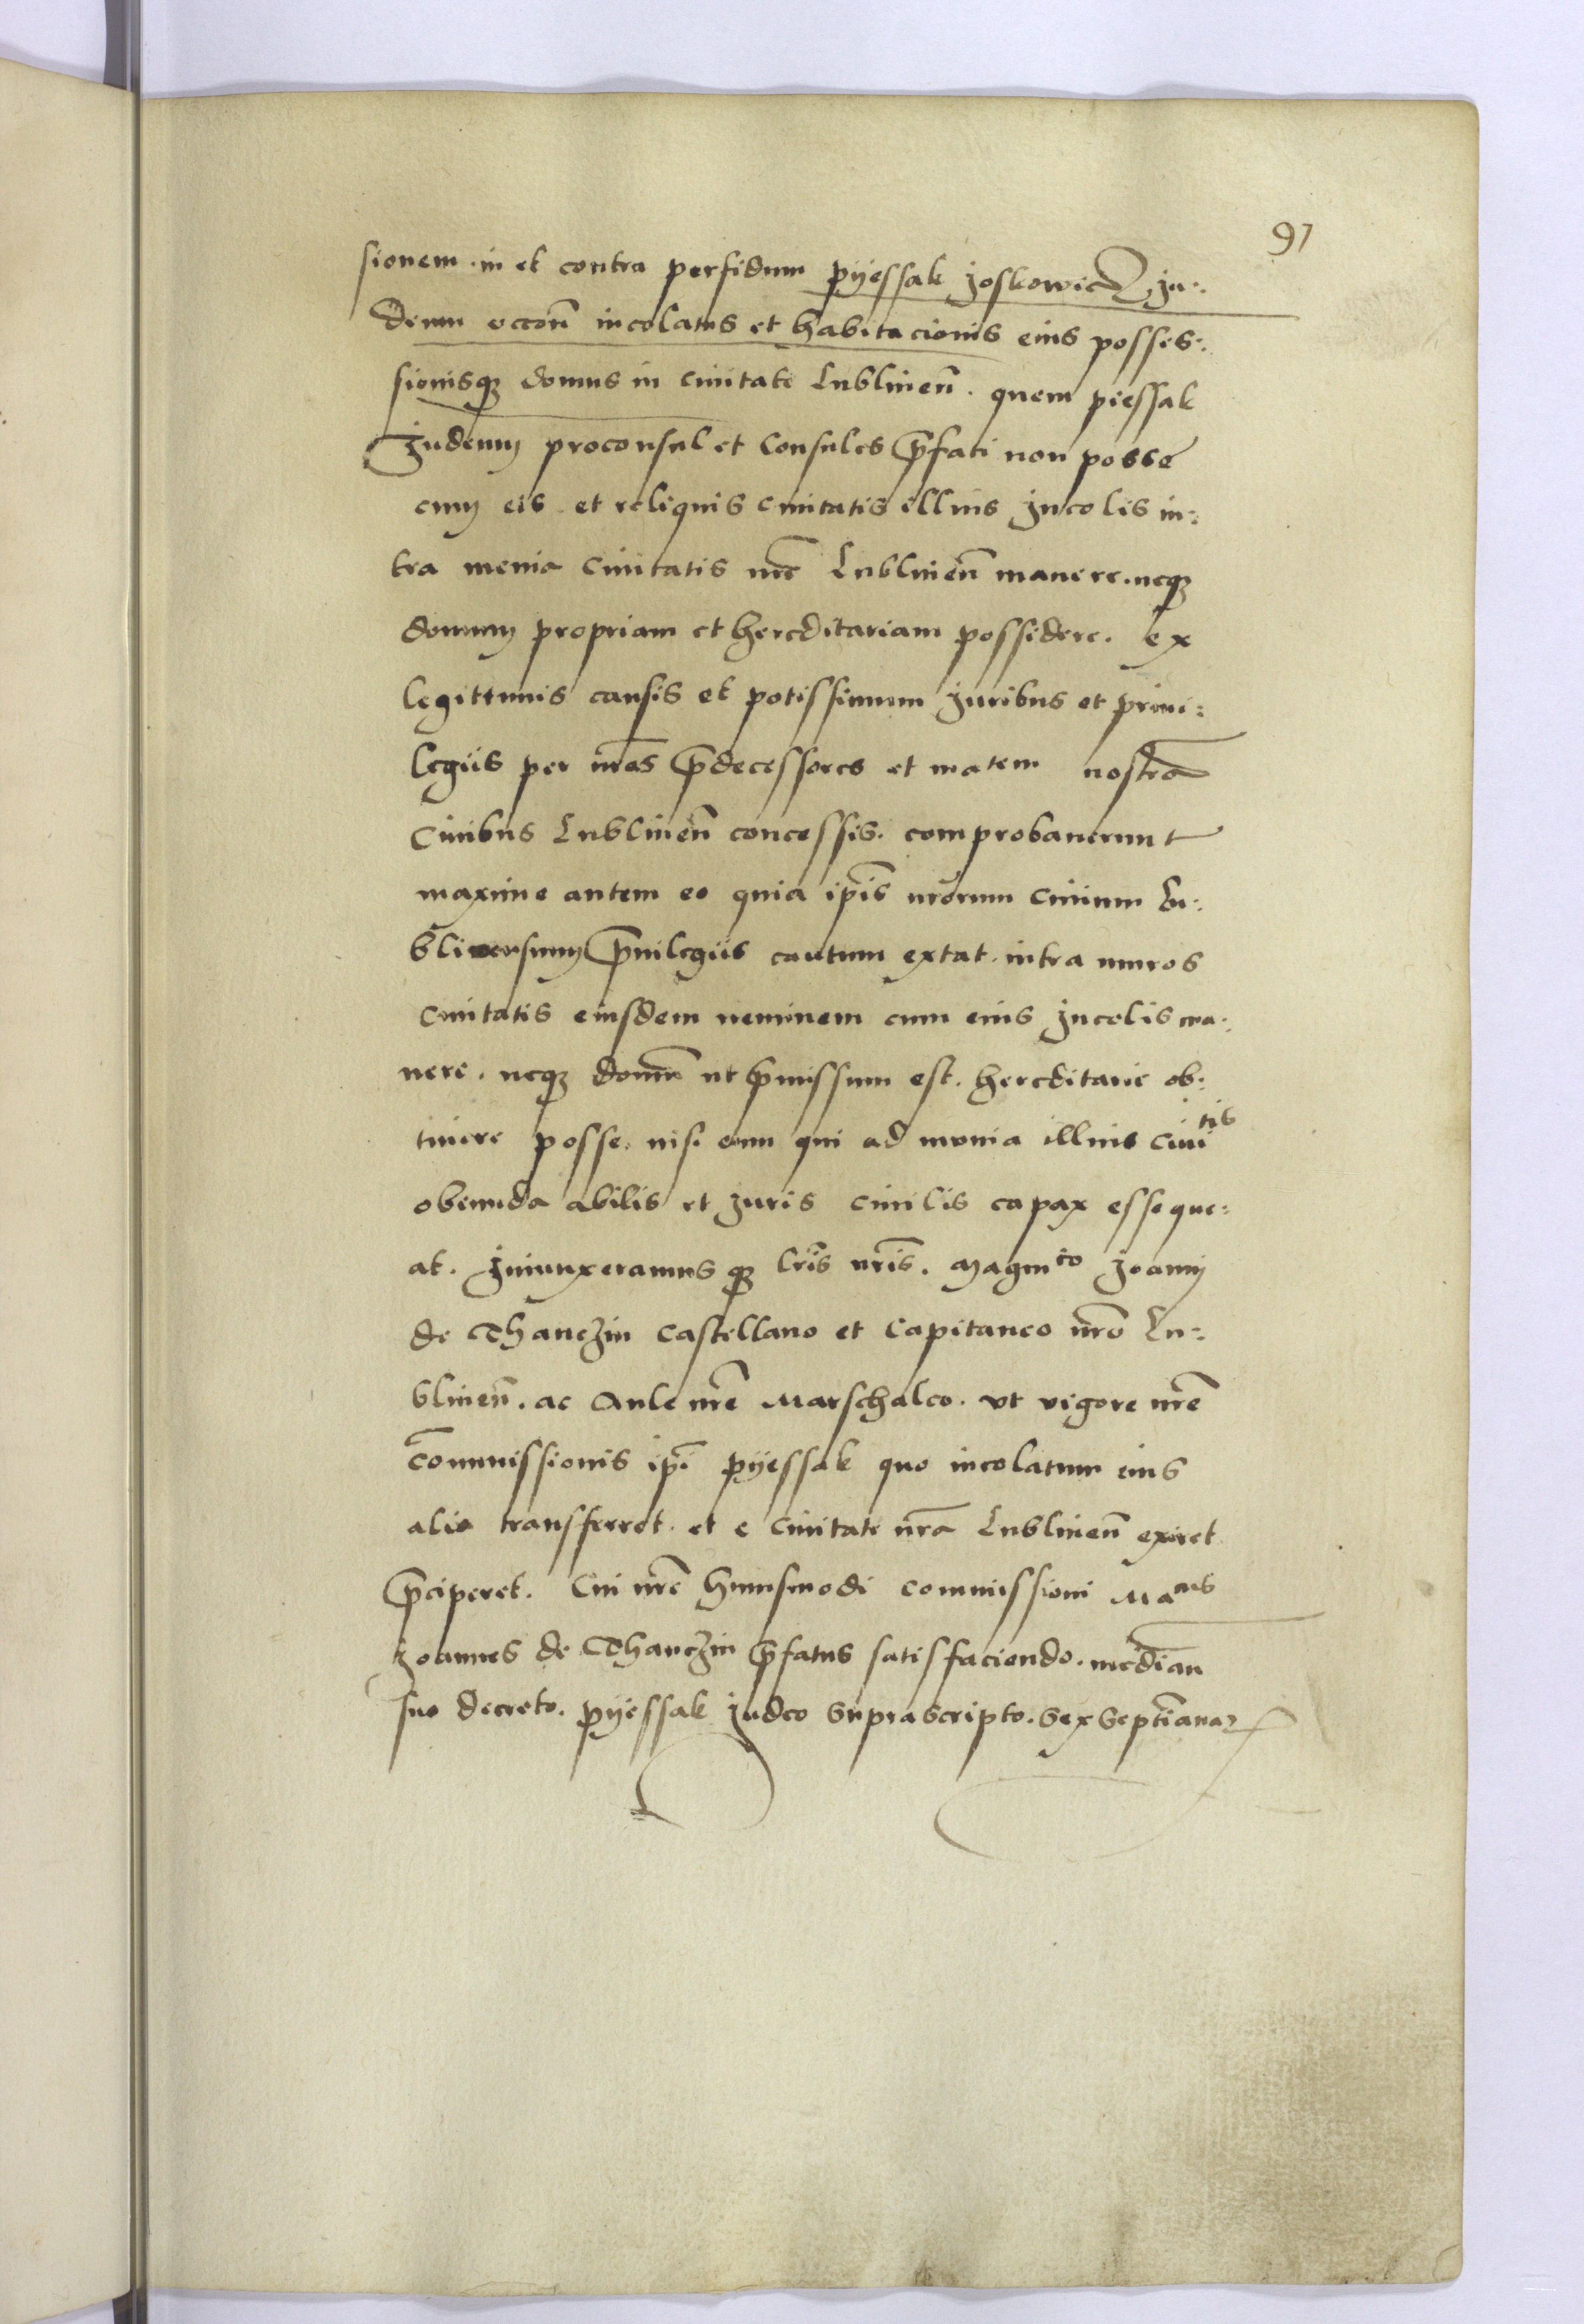 97
sionem. in et contra perfidum pyessak Joskowicz Ju:
deum occon̄ incolatus et habitacionis eius posses:
sionisq̨ domus in ciuitate Lublinen̄. quem piessak
Judeum proconsul et Consules p̄fati non posse
cum eis et reliquis ciuitatis illius Jncolis in:
tra menia Ciuitatis nr̄e Lublinen̄ manere. neq̨
domum propriam et hereditariam possidere. ex
legittimis causis et potissimum Juribus et priui:
legiis per nr̄os p̄decessores et matem nostrā
Ciuibus Lublinen̄ concessis. comprobauerunt
maxime autem eo quia ip̄is nr̄orum Ciuium Lu:
blinensium p̄uilegiis cautum extat. intra muros
Ciuitatis eiusdem neminem cum eius Jncolis ma:
nere. neq̨ domū ut p̄missum est. hereditarie ob:
tinere posse. nisi eum qui ad munia illius Ciuitis
obeunda abilis et Juris Ciuilis capax esse que:
at. Jniunxeramus q̨ lr̄is nr̄is. Magnico Joanni
de Thanczin Castellano et Capitaneo nr̄o Lu:
blinen̄. ac Aule nr̄e Marschalco. vt vigore nr̄e
Com̄missionis ip̄i pyessak quo incolatum eius
alio transferret. et e Ciuitate nr̄a Lublinen̄ exiret
p̄ciperet. Cui nr̄e huiusmodi commissioni Macus
Joannes de Thanczin p̄fatus satisfaciendo. median̄
suo decreto. pyessak Judeo suprascripto. sex septīanar